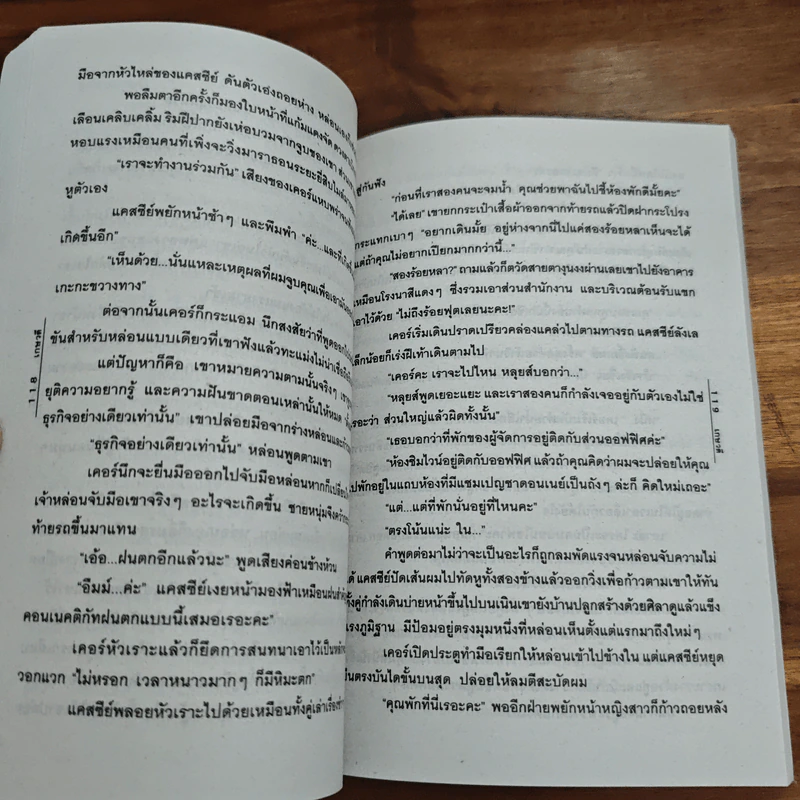 มือจากหัวไหล่ของแคสซีย์ ดันตัวเองถอยห่าง หล่อน
พอลืมตาอีกครั้งก็มองใบหน้าที่แก้มแดงจัด
เลือนเคลิบเคลิ้ม ริมฝีปากยังเห่อบวมจากจูบของเขา
หอบแรงเหมือนคนที่เพิ่งจะวิ่งมาราธอนระยะยี่สิบไมล์
"เราจะทำงานร่วมกัน" เสียงของเคอร์แหบพร่า
หูตัวเอง
แคสซีย์พยักหน้าช้าๆ และพึมพำ "ค่ะ...และที่
เกิดขึ้นอีก"
"เห็นด้วย...นั่นแหละเหตุผลที่ผมจูบคุณเพื่อเอา
เกะกะขวางทาง"
ต่อจากนั้นเคอร์ก็กระแอม นึกสงสัยว่าที่พูดออก
ขันสำหรับหล่อนแบบเดียวที่เขาฟังแล้วทะแม่งไม่น่าเชื่อ
แต่ปัญหาก็คือ เขาหมายความตามนั้นจริงๆ
ยุติความอยากรู้ และความฝันขาดตอนเหล่านั้นให้หมด
ธุรกิจอย่างเดียวเท่านั้น" เขาปล่อยมือจากร่างหล่อนและ
"ธุรกิจอย่างเดียวเท่านั้น" หล่อนพูดตามเขา
เคอร์นึกจะยื่นมือออกไปจับมือหล่อนหากก็เปลี่ยน
เจ้าหล่อนจับมือเขาจริงๆ อะไรจะเกิดขึ้น ชายหนุ่มจึง
ท้ายรถขึ้นมาแทน
"เอ้อ...ฝนตกอีกแล้วนะ" พูดเสียงค่อนข้างห้วน
"อืมม์...ค่ะ" แคสซีย์เงยหน้ามองฟ้าเหมือนฝน
คอนเนคติกัทฝนตกแบบนี้เสมอเรอะคะ"
เคอร์หัวเราะแล้วก็ยึดการสนทนาเอาไว้เป็น
วอกแวก "ไม่หรอก เวลาหนาวมากๆ ก็มีหิมะตก"
แคสซีย์พลอยหัวเราะไปด้วยเหมือนทั้งคู่เล่าเรื่อง
118 เกษวดี
สู่กันฟัง
"ก่อนที่เราสองคนจะจมน้ำ คุณช่วยพาฉันไปชี้ห้องพักดีมั้ยคะ"
"ได้เลย" เขายกกระเป๋าเสื้อผ้าออกจากท้ายรถแล้วปิดฝากระโปรง
กระแทกเบาๆ "อยากเดินมั้ย อยู่ห่างจากนี่ไปแค่สองร้อยหลาเห็นจะได้
แต่ถ้าคุณไม่อยากเปียกมากกว่านี้..."
"สองร้อยหลา?" ถามแล้วก็ตวัดสายตางุนงงผ่านเลยเขาไปยังอาคาร
เหมือนโรงนาสีแดงๆ ซึ่งรวมเอาส่วนสำนักงาน และบริเวณต้อนรับแขก
เอาไว้ด้วย "ไม่ถึงร้อยฟุตเลยนะคะ!"
เคอร์เริ่มเดินปราดเปรียวคล่องแคล่วไปตามทางรถ แคสซีย์ลังเล
เล็กน้อยก็เร่งฝีเท้าเดินตามไป
"เคอร์คะ เราจะไปไหน หลุยส์บอกว่า..."
"หลุยส์พูดเยอะแยะ และเราสองคนก็กำลังเจออยู่กับตัวเองไม่ใช่
เรอะว่า ส่วนใหญ่แล้วผิดทั้งนั้น"
"เธอบอกว่าที่พักของผู้จัดการอยู่ติดกับส่วนออฟฟิศค่ะ"
"ห้องซิมไวน์อยู่ติดกับออฟฟิศ แล้วถ้าคุณคิดว่าผมจะปล่อยให้คุณ
ไปพักอยู่ในแถบห้องที่มีแชมเปญชาดอนเนย์เป็นถังๆ ล่ะก็ คิดใหม่เถอะ"
"แต่...แต่ที่พักนั่นอยู่ที่ไหนคะ"
"ตรงโน้นแน่ะ ใน..."
คำพูดต่อมาไม่ว่าจะเป็นอะไรก็ถูกลมพัดแรงจนหล่อนจับความไม่
ได้ แคสซีย์ปัดเส้นผมไปทัดหูทั้งสองข้างแล้วออกวิ่งเพื่อก้าวตามเขาให้ทัน
ทั้งคู่กำลังเดินบ่ายหน้าขึ้นไปบนเนินเขายังบ้านปลูกสร้างด้วยศิลาดูแล้วแข็ง
แรงภูมิฐาน มีป้อมอยู่ตรงมุมหนึ่งที่หล่อนเห็นตั้งแต่แรกมาถึงใหม่ๆ
เคอร์เปิดประตูทำมือเรียกให้หล่อนเข้าไปข้างใน แต่แคสซีย์หยุด
ตรงบันไดขั้นบนสุด ปล่อยให้ลมตีสะบัดผม
"คุณพักที่นี่เรอะคะ" พออีกฝ่ายพยักหน้าหญิงสาวก็ก้าวถอยหลัง
119 เกษวดี